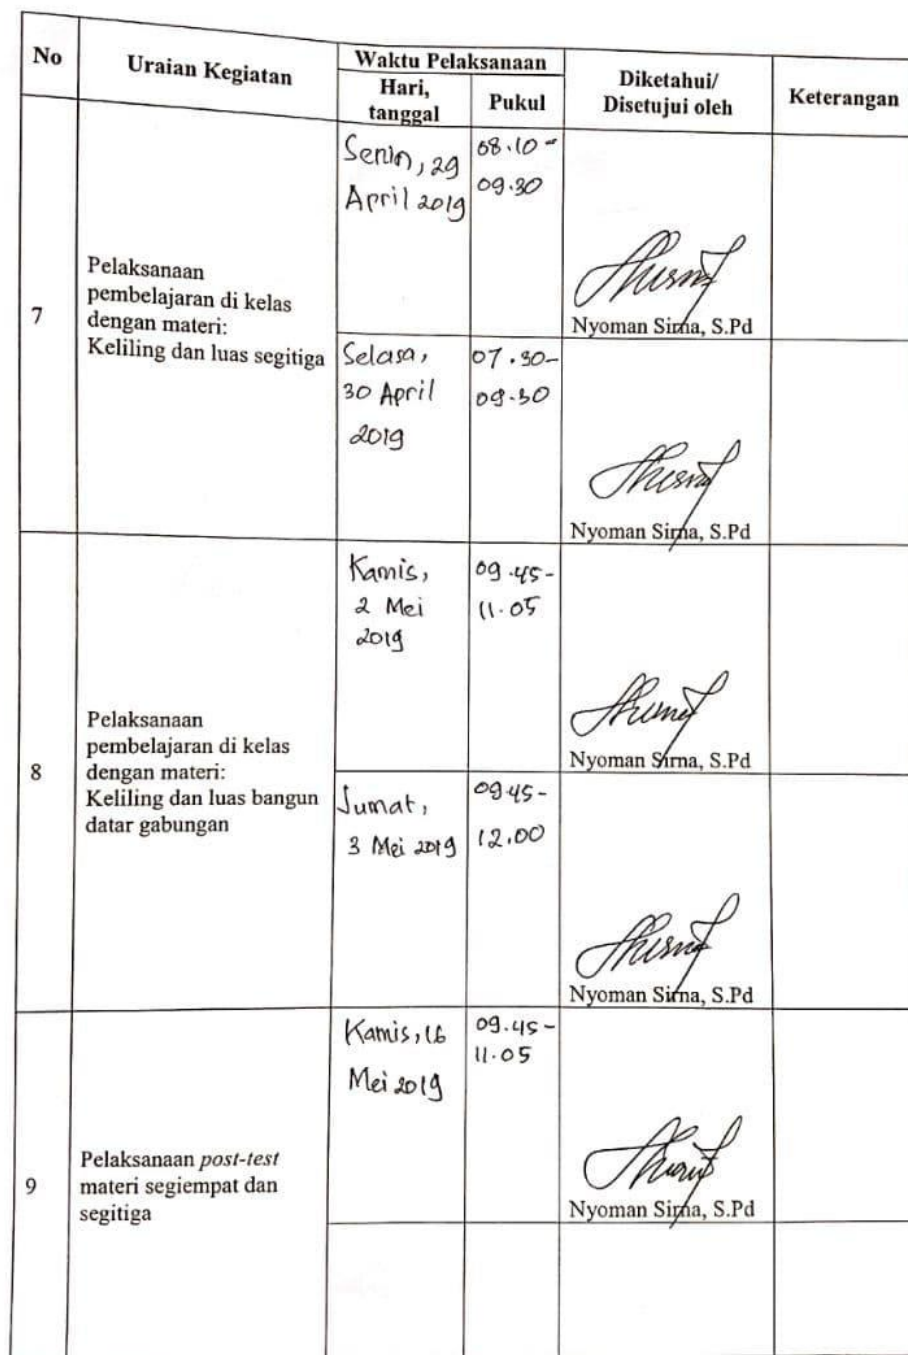 No
Uraian Kegiatan
Waktu Pelaksanaan
Hari,
tanggal
Pukul
Diketahui/
Disetujui oleh
Keterangan
7
Pelaksanaan
pembelajaran di kelas
dengan materi:
Keliling dan luas segitiga
Senin, 29
April 2019
08.10 -
09.30
Nyoman Sirna, S.Pd
Selasa,
30 April
2019
07.30-
09.30
Nyoman Sirna, S.Pd
8
Pelaksanaan
pembelajaran di kelas
dengan materi:
Keliling dan luas bangun
datar gabungan
Kamis,
2 Mei
2019
09.45-
11.05
Nyoman Sirna, S.Pd
Jumat,
3 Mei 2019
09.45-
12.00
Nyoman Sirna, S.Pd
9
Pelaksanaan post-test
materi segiempat dan
segitiga
Kamis, 16
Mei 2019
09.45-
11.05
Nyoman Sirna, S.Pd